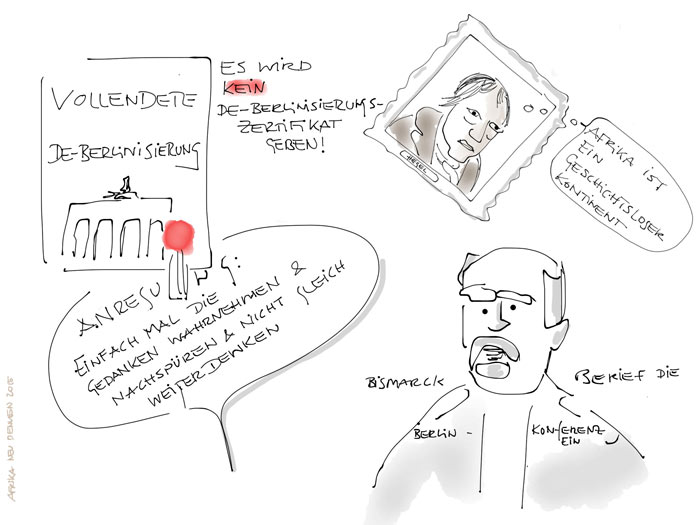 VOLLENDETE
DE-BERLINISIERUNG
ES WIRD
KEIN
DE-BERLINISIERUNGS-
ZERTIFIKAT
GEBEN!
HEGEL
AFRIKA IST
EIN
GESCHICHTSLOSER
KONTINENT
ANREGUNG:
EINFACH MAL DIE
GEDANKEN WAHRNEHMEN &
NACHSPÜREN & NICHT GLEICH
WEITERDENKEN
BISMARCK BERIEF DIE
BERLIN - KONFERENZ
EIN
AFRIKA NEU DENKEN 2015